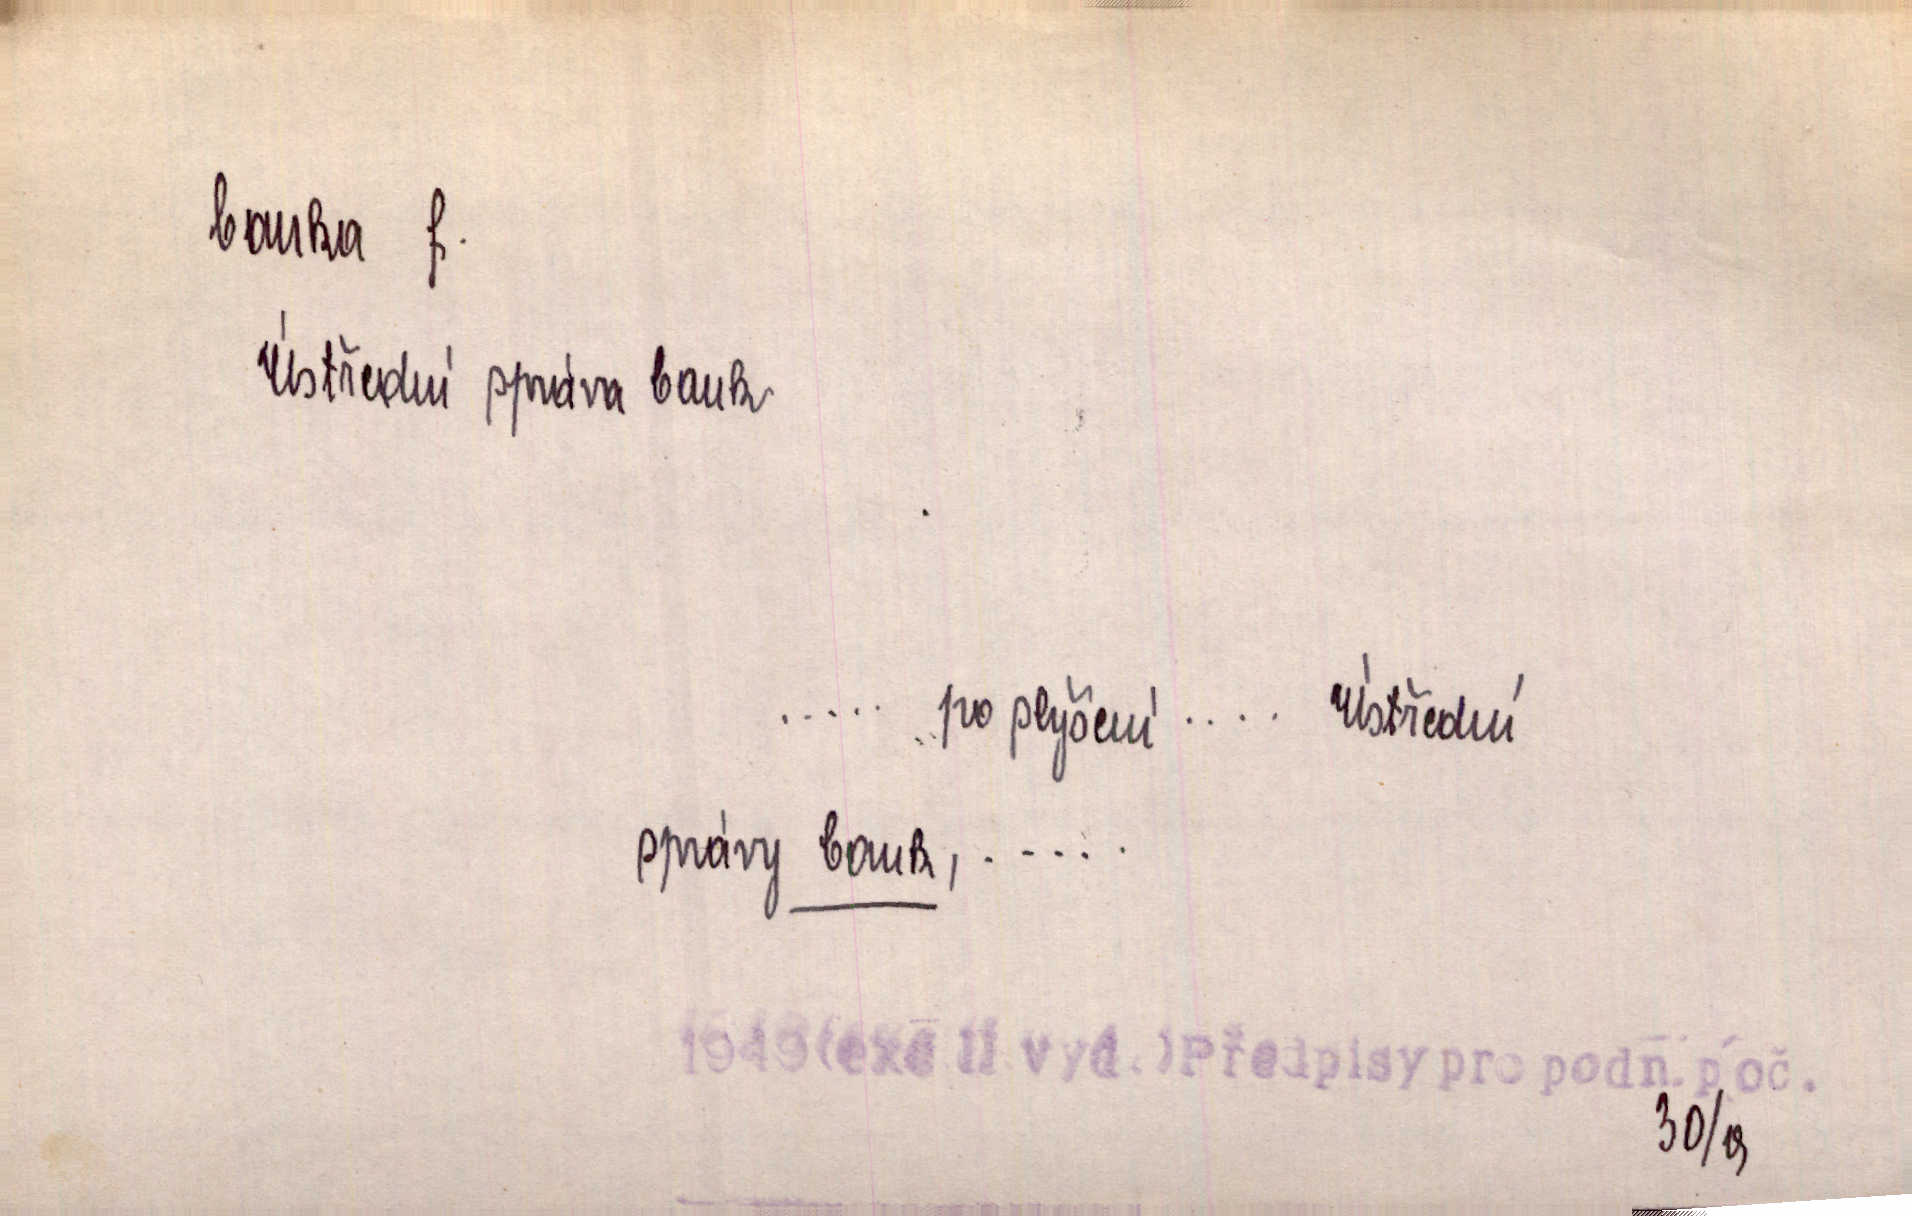 banka f.
Ústřední správa bank
..... po slyšení .... Ústřední
správy bank, .....
1949(exc II vyd.)Předpisy pro podn. poč.
30/19